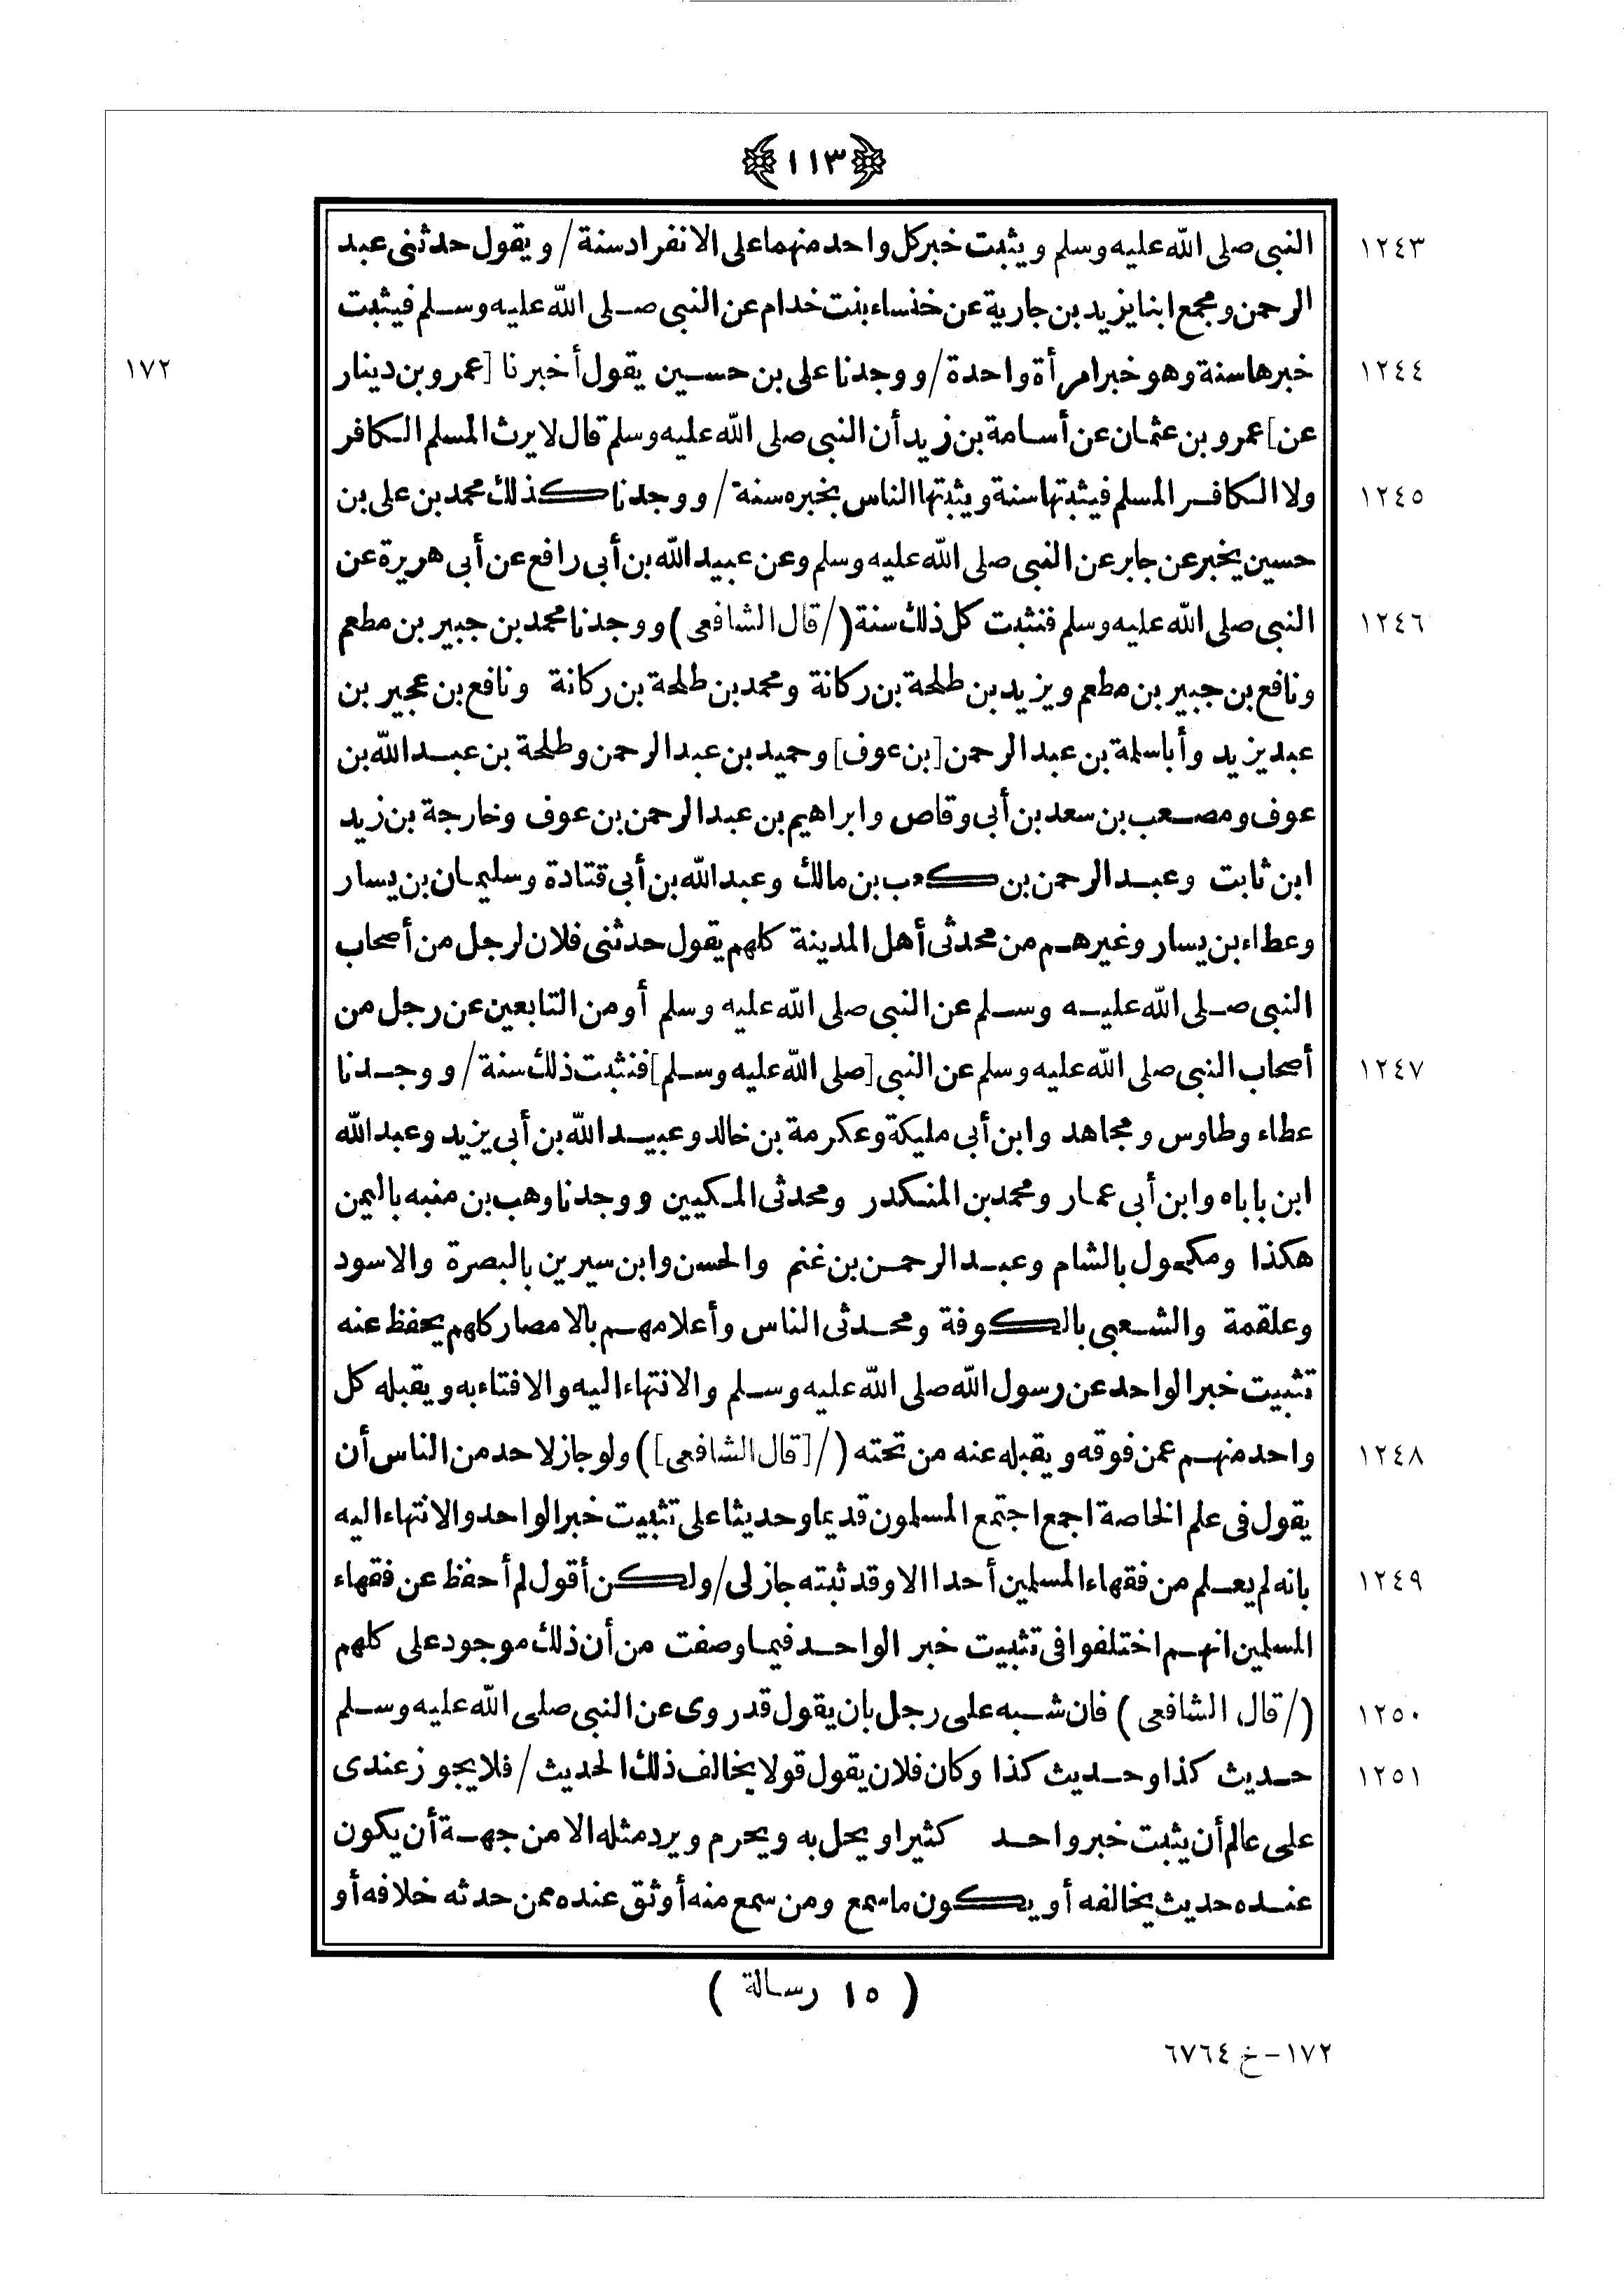 ﴿١١٣﴾
١٢٤٣ النبى صلى الله عليه وسلم ويثبت خبر كل واحد منهما على الانفراد سنة / ويقول حدثنى عبد
الرحمن ومجمع ابنا يزيد بن جارية عن خنساء بنت خدام عن النبى صلى الله عليه وسلم فيثبت
١٢٤٤ خبرها سنة وهو خبر امرأة واحدة / ووجدنا على بن حسين يقول أخبرنا [عمرو بن دينار ١٧٢
عن] عمرو بن عثمان عن أسامة بن زيد أن النبى صلى الله عليه وسلم قال لا يرث المسلم الكافر
١٢٤٥ ولا الكافر المسلم فيثبتها سنة ويثبتها الناس بخبره سنة / ووجدنا كذلك محمد بن على بن
حسين يخبر عن جابر عن النبى صلى الله عليه وسلم وعن عبيد الله بن أبى رافع عن أبى هريرة عن
١٢٤٦ النبى صلى الله عليه وسلم فنثبت كل ذلك سنة (/ قال الشافعى) ووجدنا محمد بن جبير بن مطعم
ونافع بن جبير بن مطعم ويزيد بن طلحة بن ركانة ومحمد بن طلحة بن ركانة ونافع بن عجير بن
عبد يزيد وأبا سلمة بن عبد الرحمن [بن عوف] وحميد بن عبد الرحمن وطلحة بن عبد الله بن
عوف ومصعب بن سعد بن أبى وقاص وابراهيم بن عبد الرحمن بن عوف وخارجة بن زيد
ابن ثابت وعبد الرحمن بن كعب بن مالك وعبد الله بن أبى قتادة وسليمان بن يسار
وعطاء بن يسار وغيرهم من محدثى أهل المدينة كلهم يقول حدثنى فلان لرجل من أصحاب
النبى صلى الله عليه وسلم عن النبى صلى الله عليه وسلم أو من التابعين عن رجل من
١٢٤٧ أصحاب النبى صلى الله عليه وسلم عن النبى [صلى الله عليه وسلم] فنثبت ذلك سنة / ووجدنا
عطاء وطاوس ومجاهد وابن أبى مليكة وعكرمة بن خالد وعبيد الله بن أبى يزيد وعبد الله
ابن باباه وابن أبى عمار ومحمد بن المنكدر ومحدثى المكيين ووجدنا وهب بن منبه باليمن
هكذا ومكحول بالشام وعبد الرحمن بن غنم والحسن وابن سيرين بالبصرة والاسود
وعلقمة والشعبى بالكوفة ومحدثى الناس وأعلامهم بالامصار كلهم يحفظ عنه
تثبيت خبر الواحد عن رسول الله صلى الله عليه وسلم والانتهاء اليه والافتاء به ويقبله كل
١٢٤٨ واحد منهم عمن فوقه ويقبله عنه من تحته (/ [قال الشافعى]) ولو جاز لاحد من الناس أن
يقول فى علم الخاصة اجمع اجتمع المسلمون قديما وحديثا على تثبيت خبر الواحد والانتهاء اليه
١٢٤٩ بانه لم يعلم من فقهاء المسلمين أحدا الا وقد ثبته جاز لى / ولكن أقول لم أحفظ عن فقهاء
المسلمين انهم اختلفوا فى تثبيت خبر الواحد فيما وصفت من أن ذلك موجود على كلهم
١٢٥٠ (/ قال الشافعى) فان شبه على رجل بان يقول قد روى عن النبى صلى الله عليه وسلم
١٢٥١ حديث كذا وحديث كذا وكان فلان يقول قولا يخالف ذلك الحديث / فلا يجوز عندى
على عالم أن يثبت خبر واحد كثيرا ويحل به ويحرم ويرد مثله الا من جهة أن يكون
عنده حديث يخالفه أو يكون ما سمع ومن سمع منه أوثق عنده ممن حدثه خلافه أو
( ١٥ رسالة )
١٧٢ - خ ٦٧٦٤